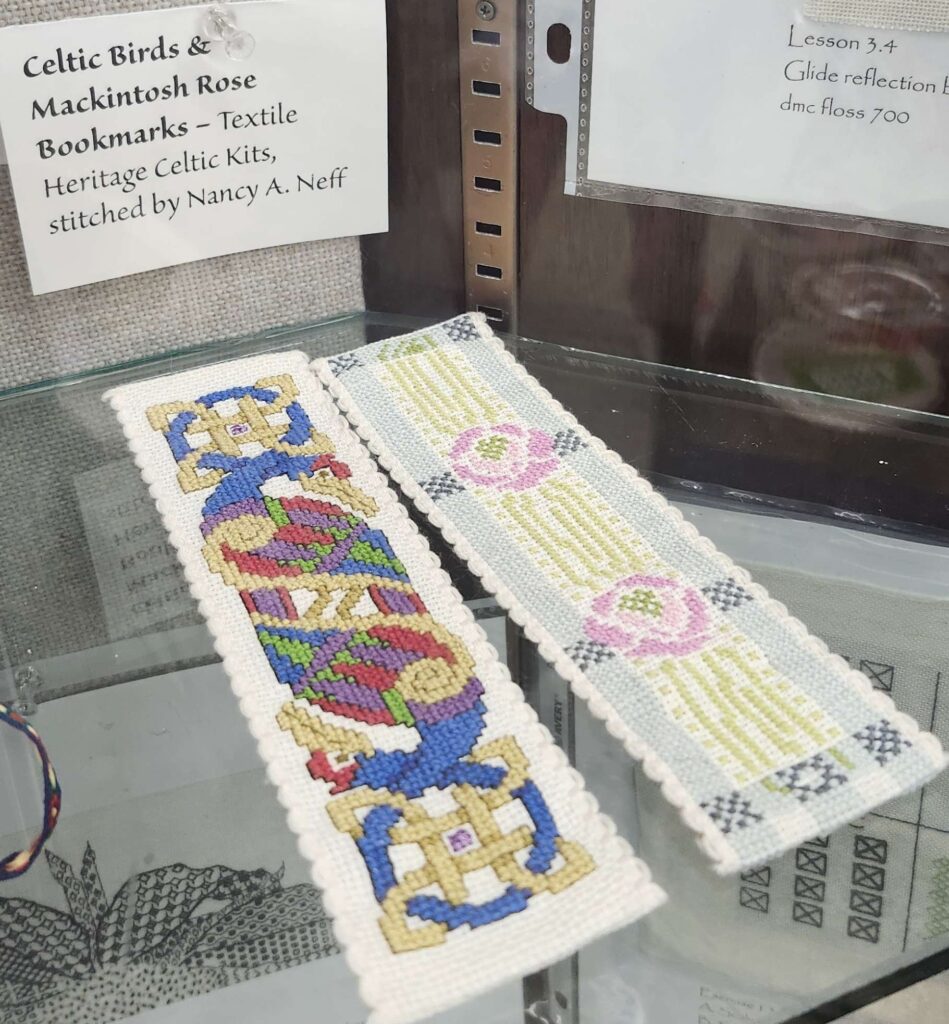 Celtic Birds &
Mackintosh Rose
Bookmarks – Textile
Heritage Celtic Kits,
stitched by Nancy A. Neff
Lesson 3.4
Glide reflection
dmc floss 700
6
5
4